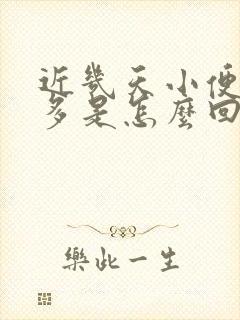 近幾天小便
多是怎麼回
樂此一生